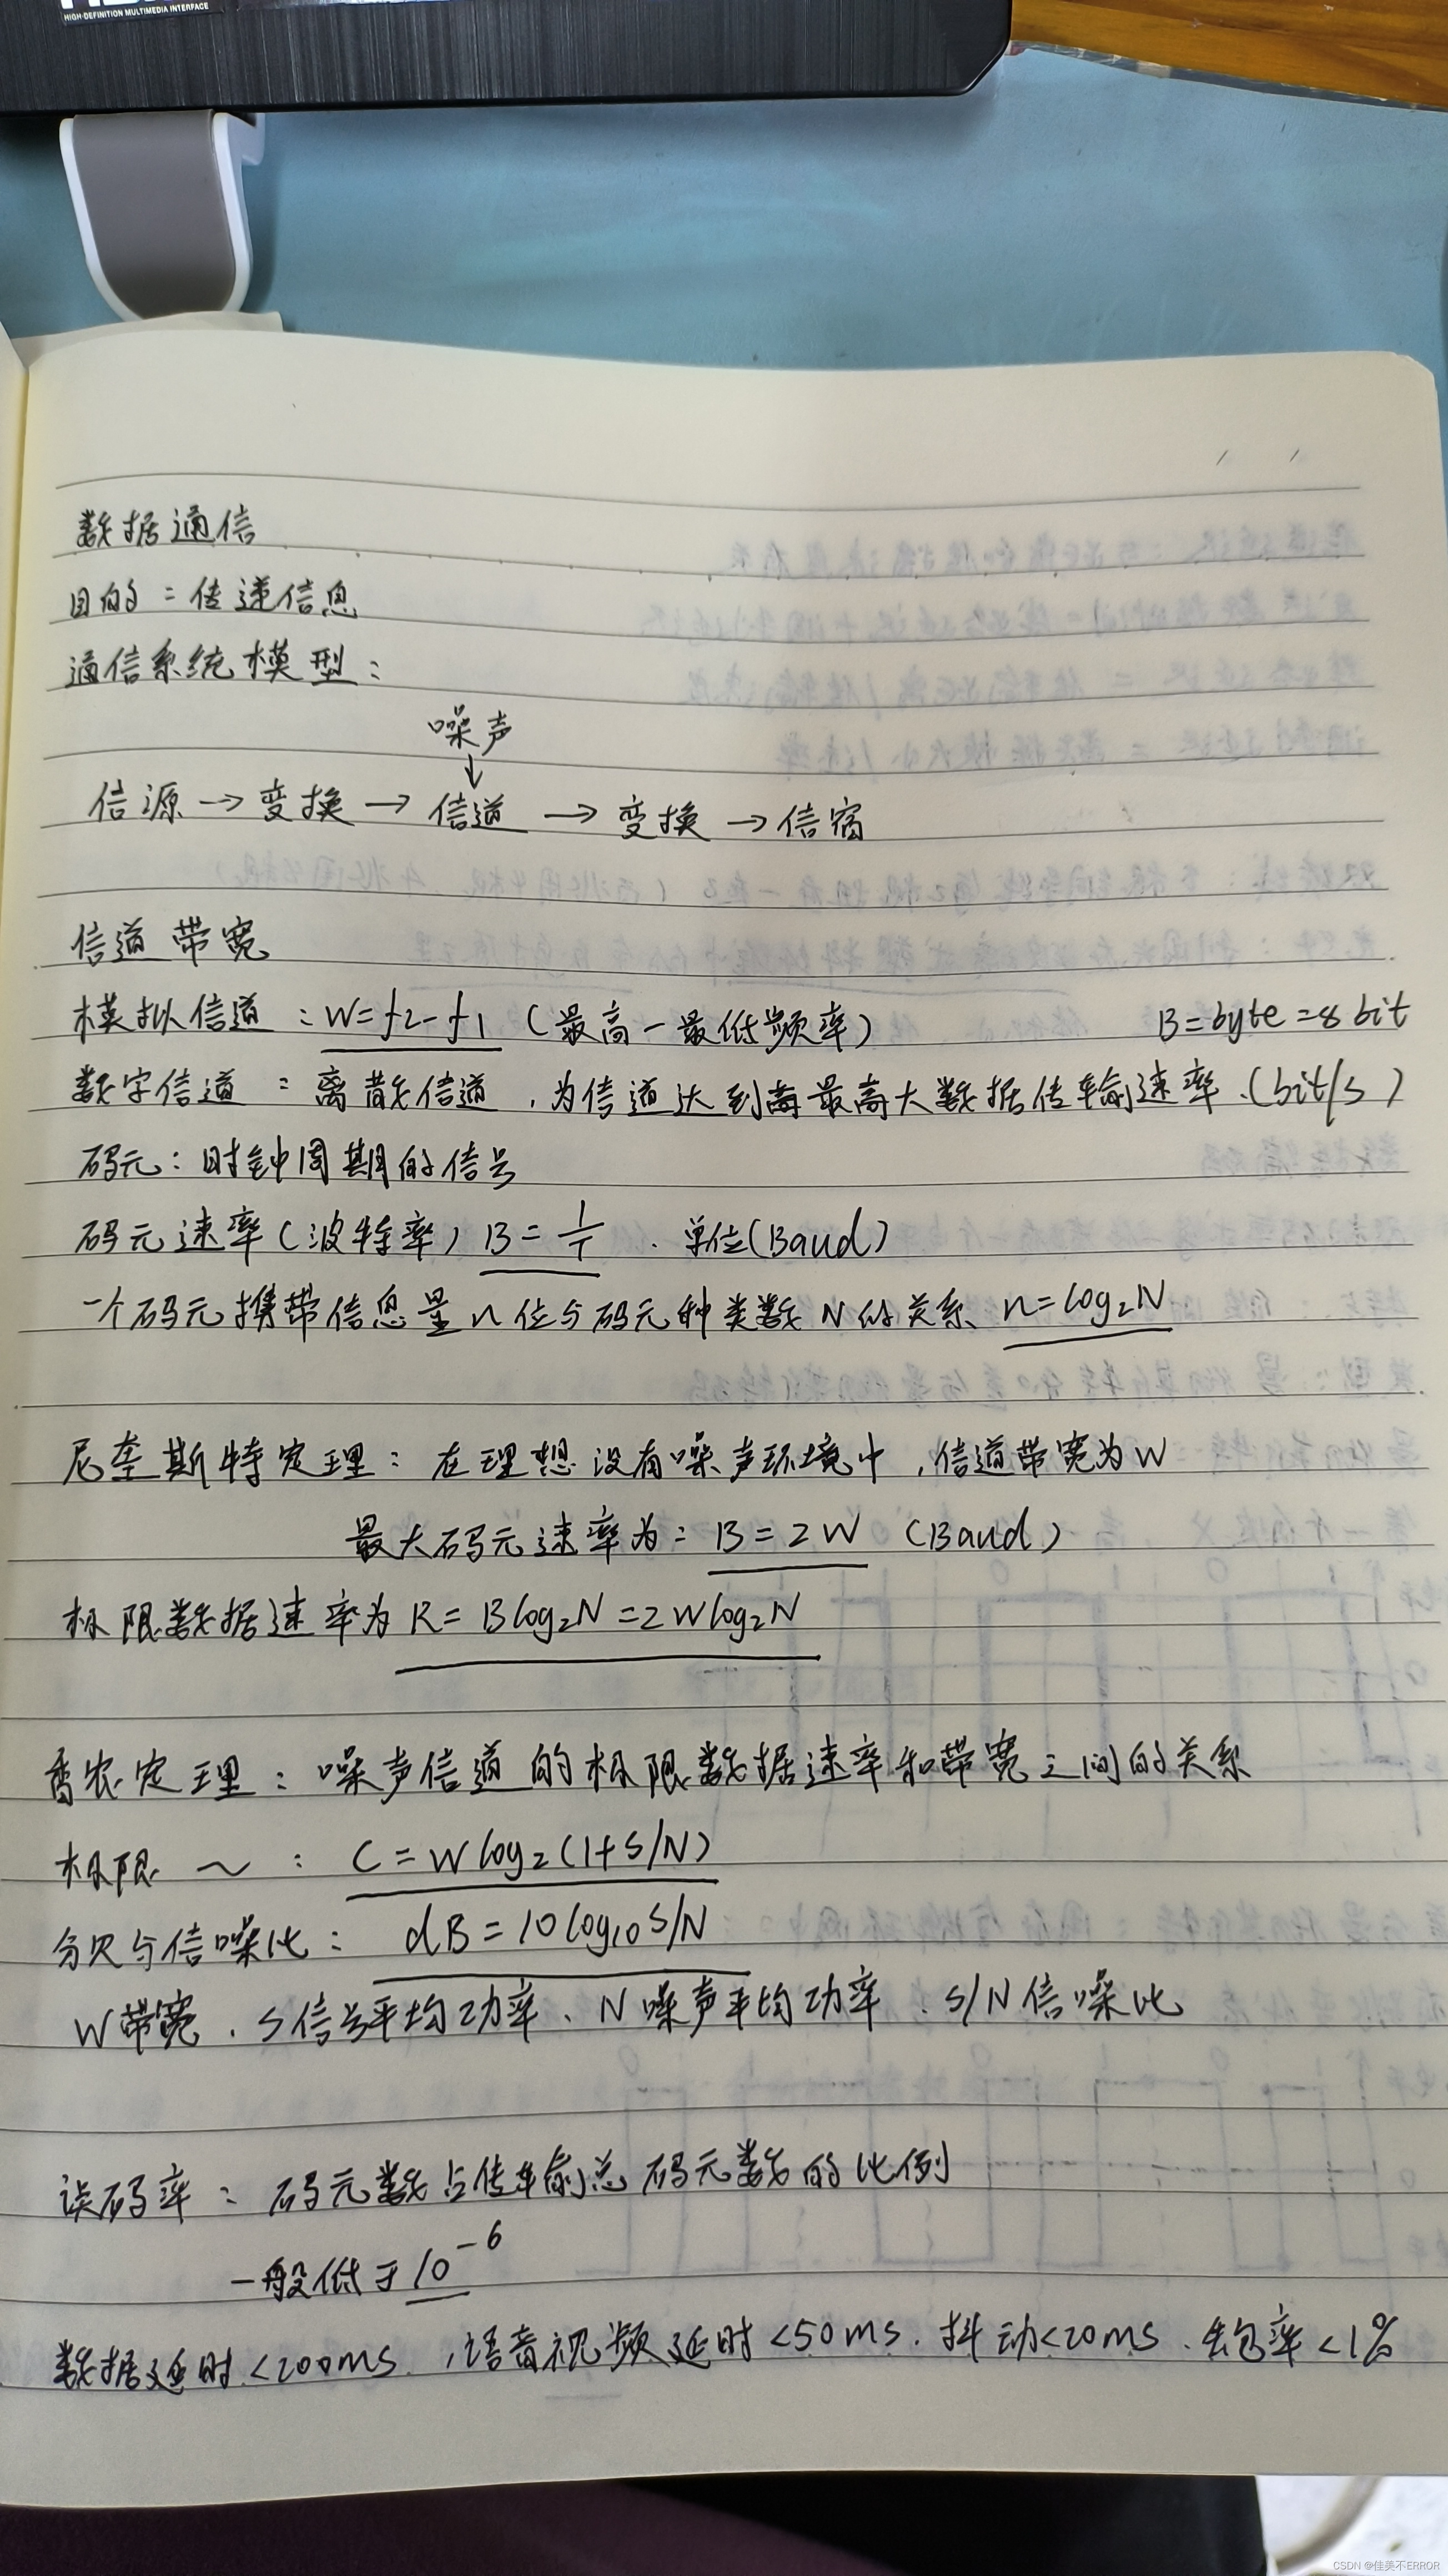 HIGH-DEFINITION MULTIMEDIA INTERFACE
数据通信
目的：传递信息
通信系统模型：
噪声
↓
信源→变换→信道→变换→信宿
信道带宽
模拟信道：W=f2-f1（最高-最低频率） B=byte=8bit
数字信道：离散信道，为信道达到最高大数据传输速率、(bit/s)
码元：时钟周期的信号
码元速率(波特率) B=1/T、单位(Baud)
一个码元携带信息量n位与码元种类数N的关系 n=log₂N
尼奎斯特定理：在理想没有噪声环境中，信道带宽为W
最大码元速率为：B=2W (Baud)
极限数据速率为 R=Blog₂N=2Wlog₂N
香农定理：噪声信道的极限数据速率和带宽之间的关系
极限～：C=Wlog₂(1+S/N)
分贝与信噪比：dB=10log₁₀S/N
W带宽、S信号平均功率、N噪声平均功率、S/N信噪比
误码率：码元数占传输总码元数的比例
一般低于10⁻⁶
数据延时<200ms、语音视频延时<50ms、抖动<20ms、丢包率<1%
CSDN @佳美不ERROR